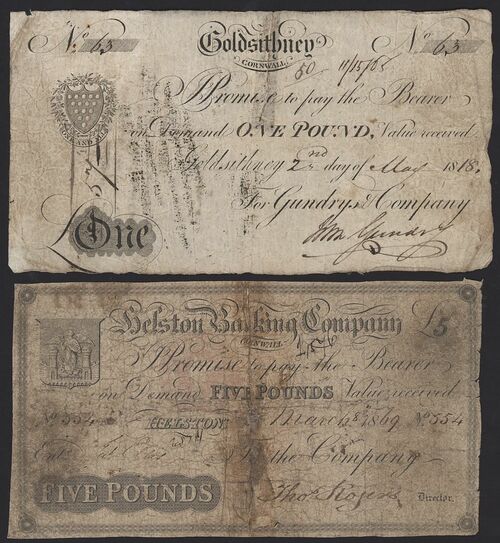 No 63 Goldsithney No 63
CORNWALL
50
I Promise to pay the Bearer
on Demand ONE POUND, Value received
Goldsithney 2nd day of May 1818.
For Gundrys & Company
ONE AND ALL
One
John Gundry
Helston Banking Company £5
CORNWALL
I Promise to pay the Bearer
on Demand FIVE POUNDS Value received
No 554 HELSTON March 1869 No 554
the Company
FIVE POUNDS Thos Rogers Director.